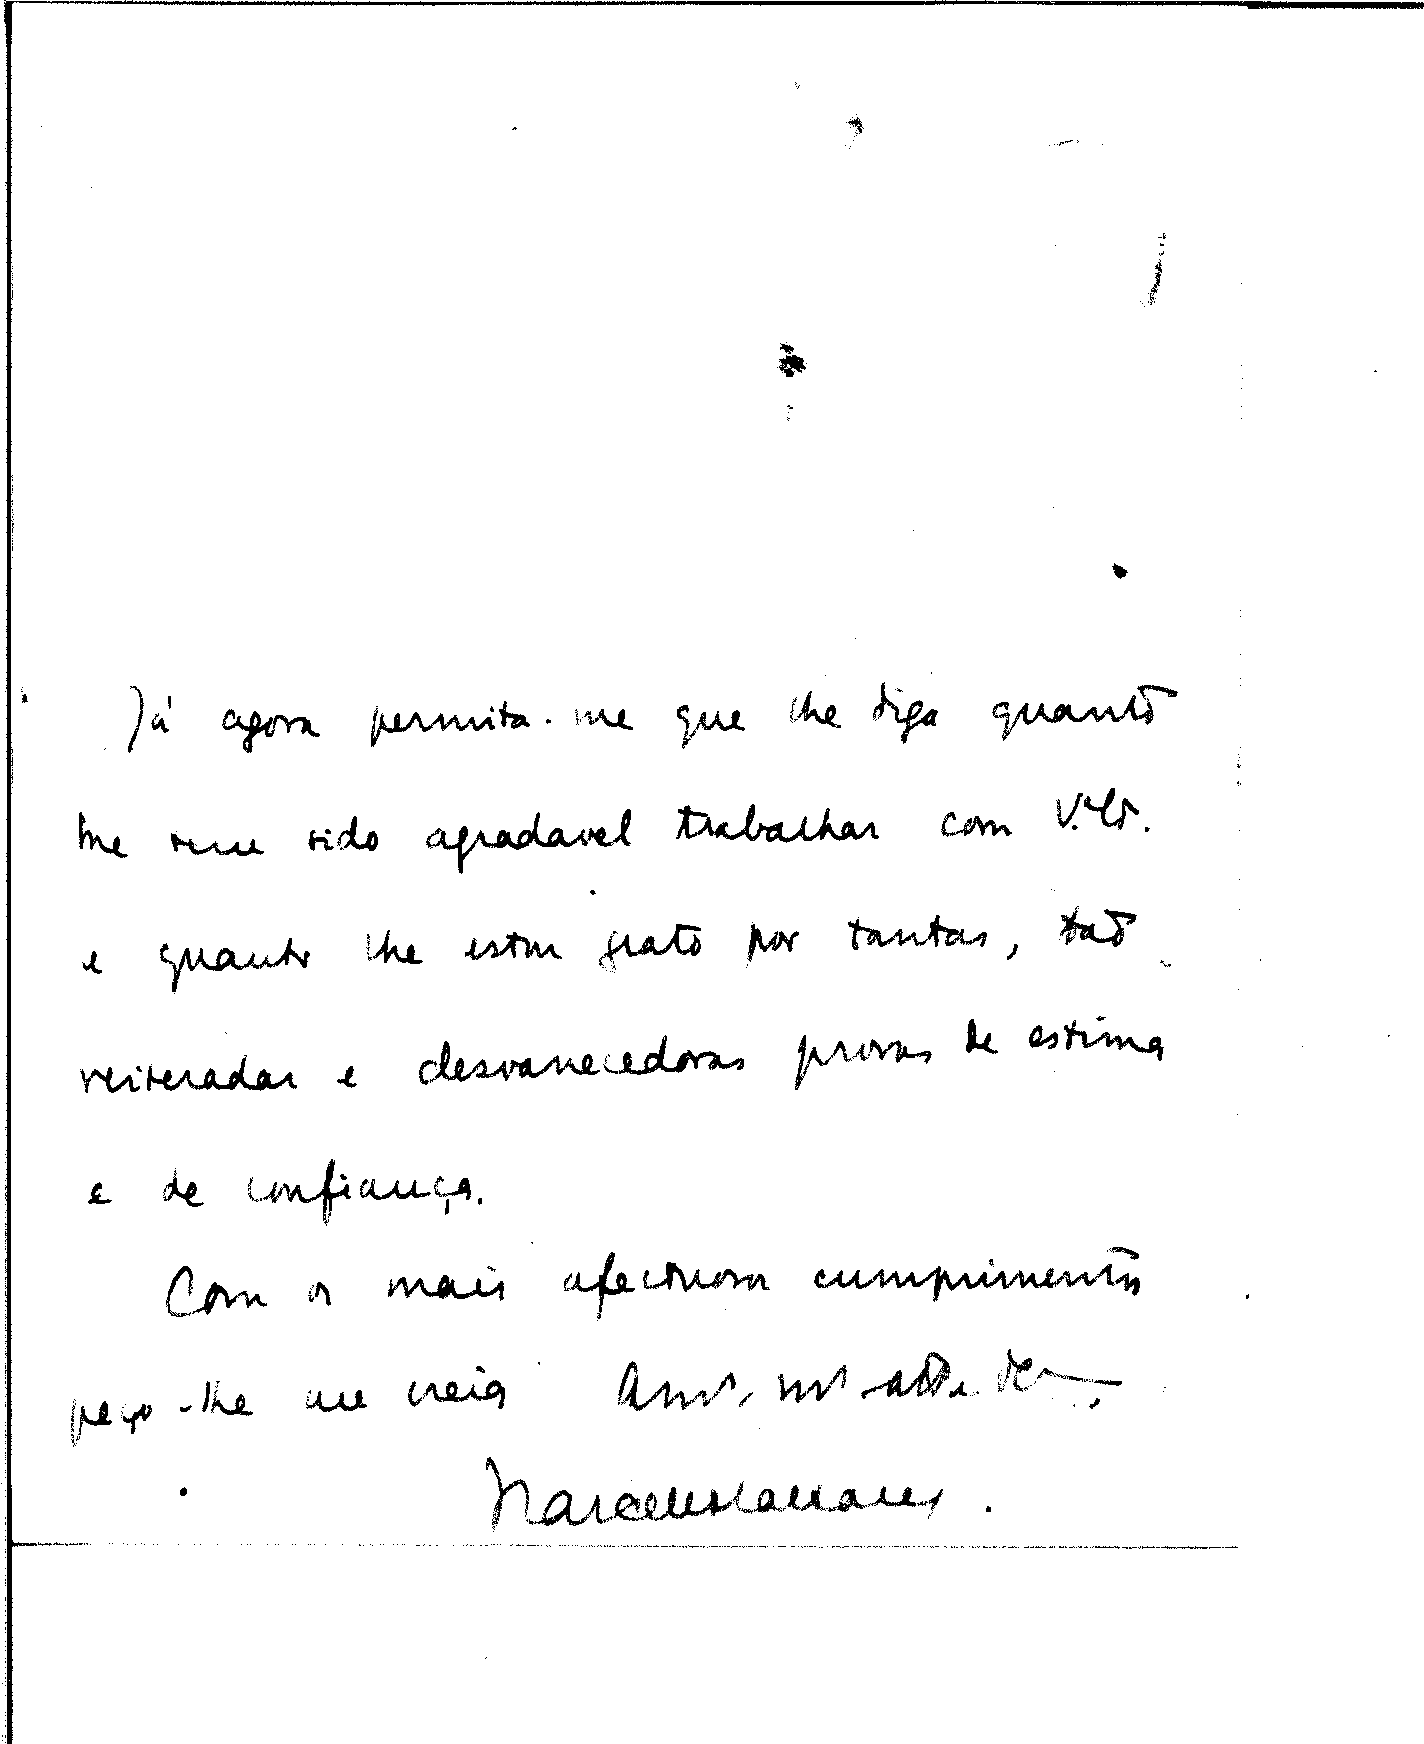 Já agora permita-me que lhe diga quanto
me tem sido agradavel trabalhar com V. Ex.
e quanto lhe estou grato por tantas, tão
reiteradas e desvanecedoras provas de estima
e de confiança.
Com os mais afectuosos cumprimentos
peço-lhe me creia Amº. mtº.
Marcello Caetano.